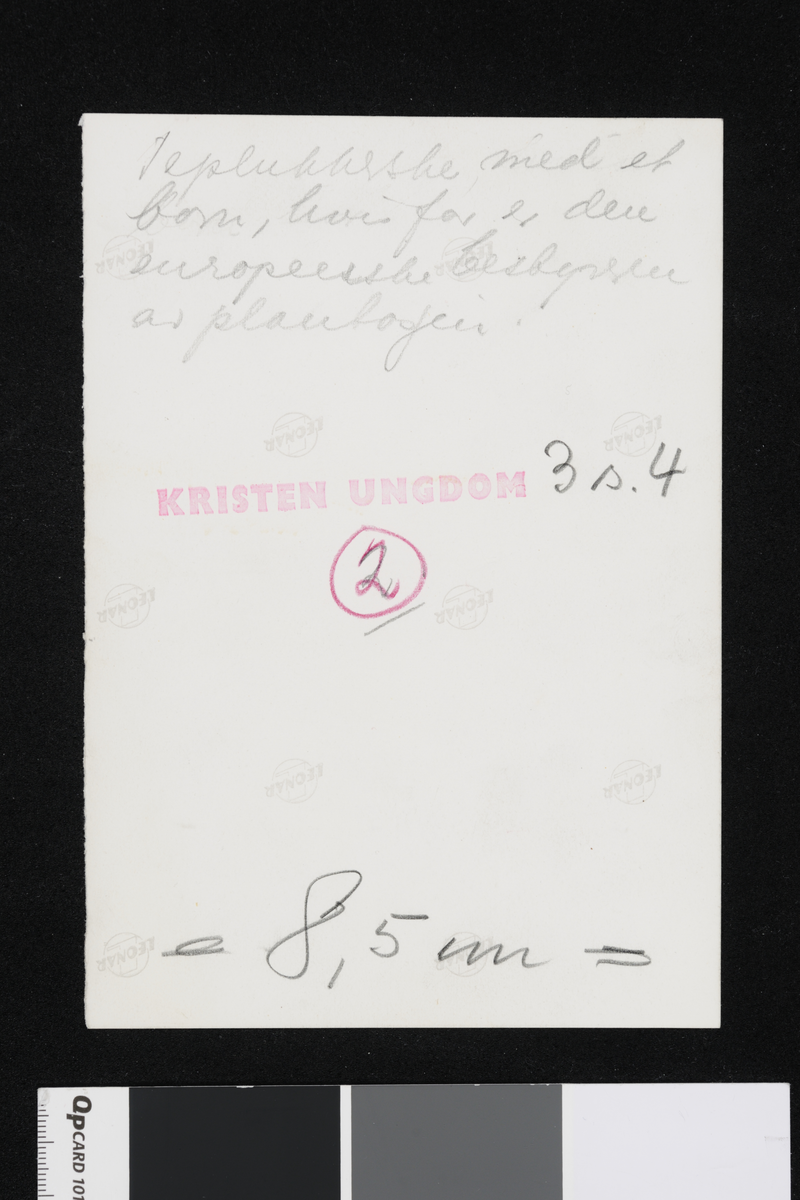 Teplukkerske med et
barn, hvis far er den
europeeiske bestyreren
av plantasjen.
KRISTEN UNGDOM 3 s. 4
2
= 8,5 cm =
LEONAR
LEONAR
LEONAR
LEONAR
LEONAR
LEONAR
LEONAR
LEONAR
LEONAR
LEONAR
QPCARD 101